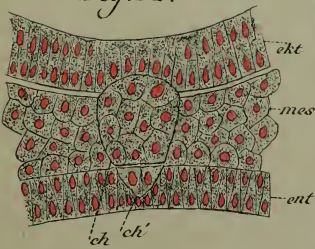 ekt
mes
ent
ch ch'